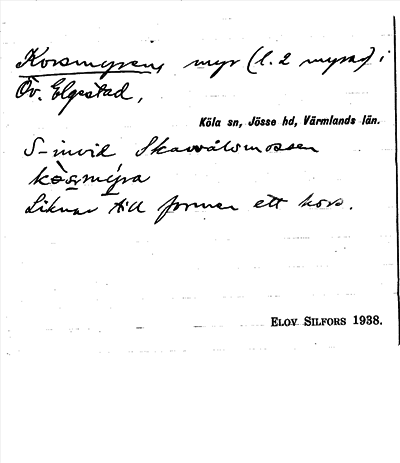 Korsmyren, myr (l. 2 myrar) i
Öv. Elgestad.
Köla sn, Jösse hd, Värmlands län.
S-invid Skarvålsmossen
kòs̲mýra
Liknar till formen ett kors.
ELOV SILFORS 1938.